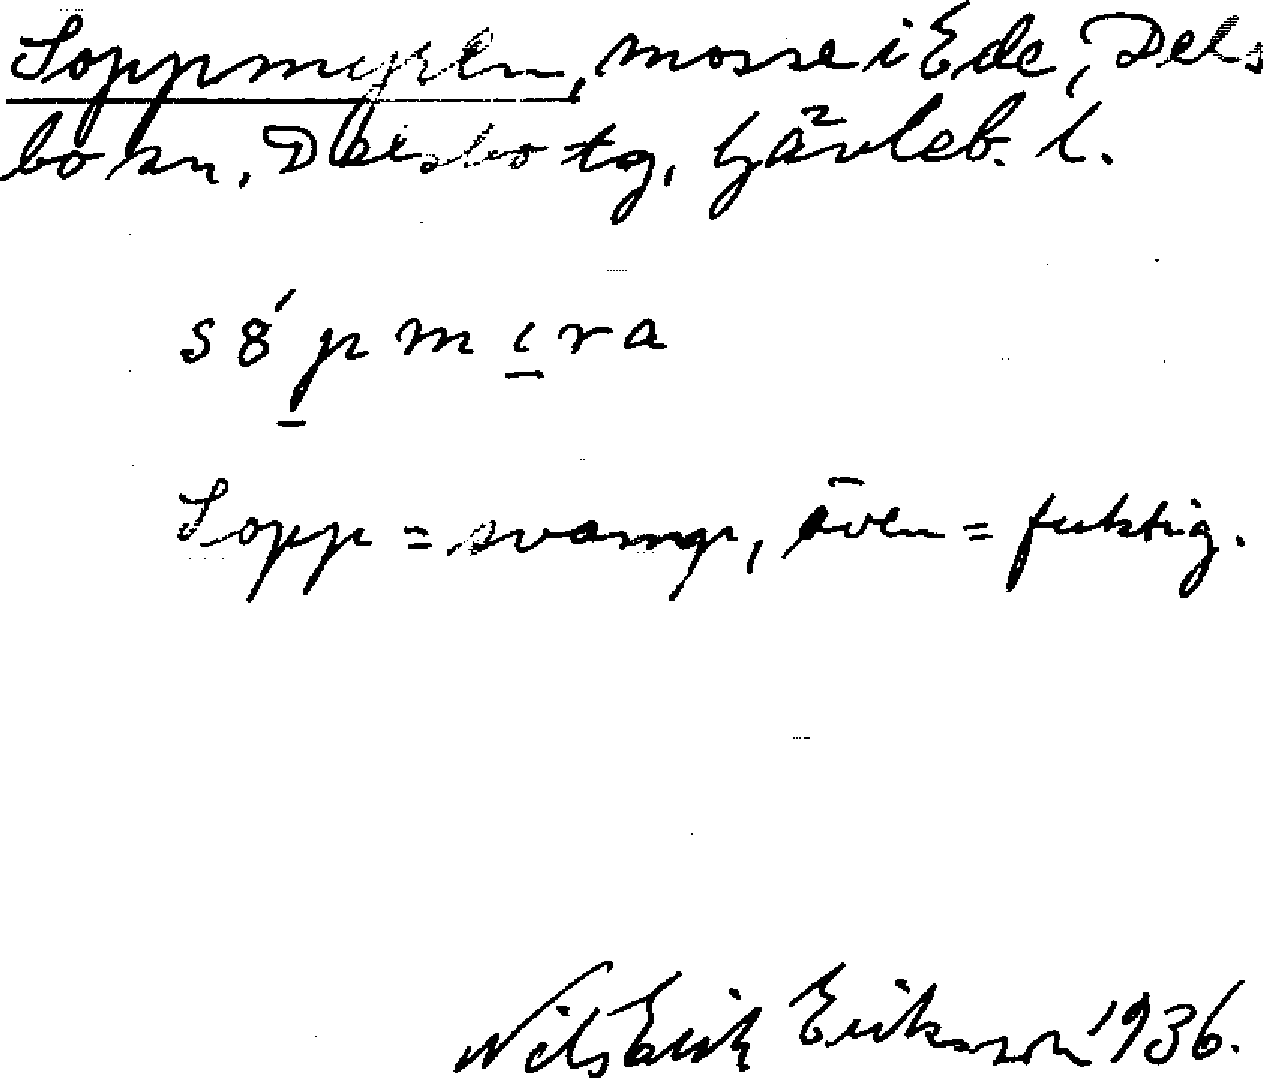 Soppmyren, mosse i Ede, Dels
bo sn, Delsbo tg, Gävleb. l.
s8́pmıra
Sopp = svamp, även = fuktig.
Nils Erik Eriksson 1936.